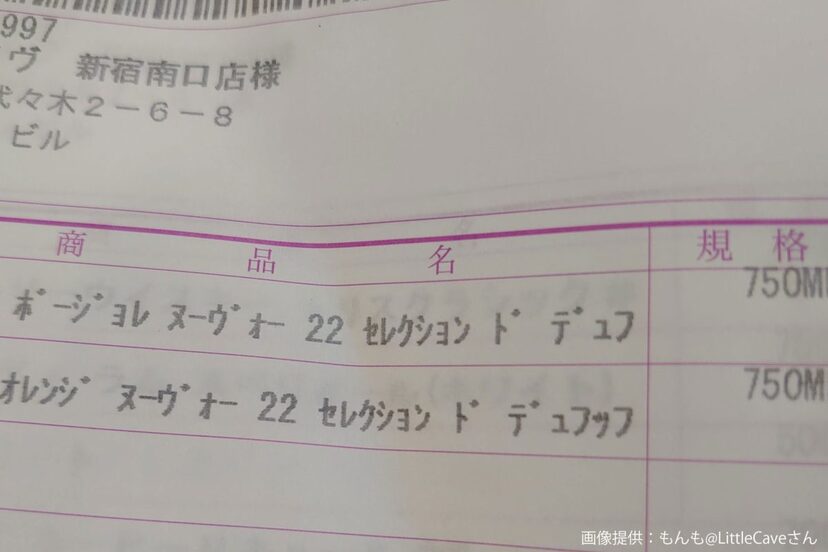 997
ヴ 新宿南口店様
代々木2－6－8
ビル
商品名 規格
ﾎﾞｰｼﾞｮﾚ ﾇｰｳﾞｫｰ 22 ｾﾚｸｼｮﾝ ﾄﾞ ﾃﾞｭﾌ 750M
ｵﾚﾝｼﾞ ﾇｰｳﾞｫｰ 22 ｾﾚｸｼｮﾝ ﾄﾞ ﾃﾞｭﾌｯﾌ 750M
画像提供：もんも@LittleCaveさん